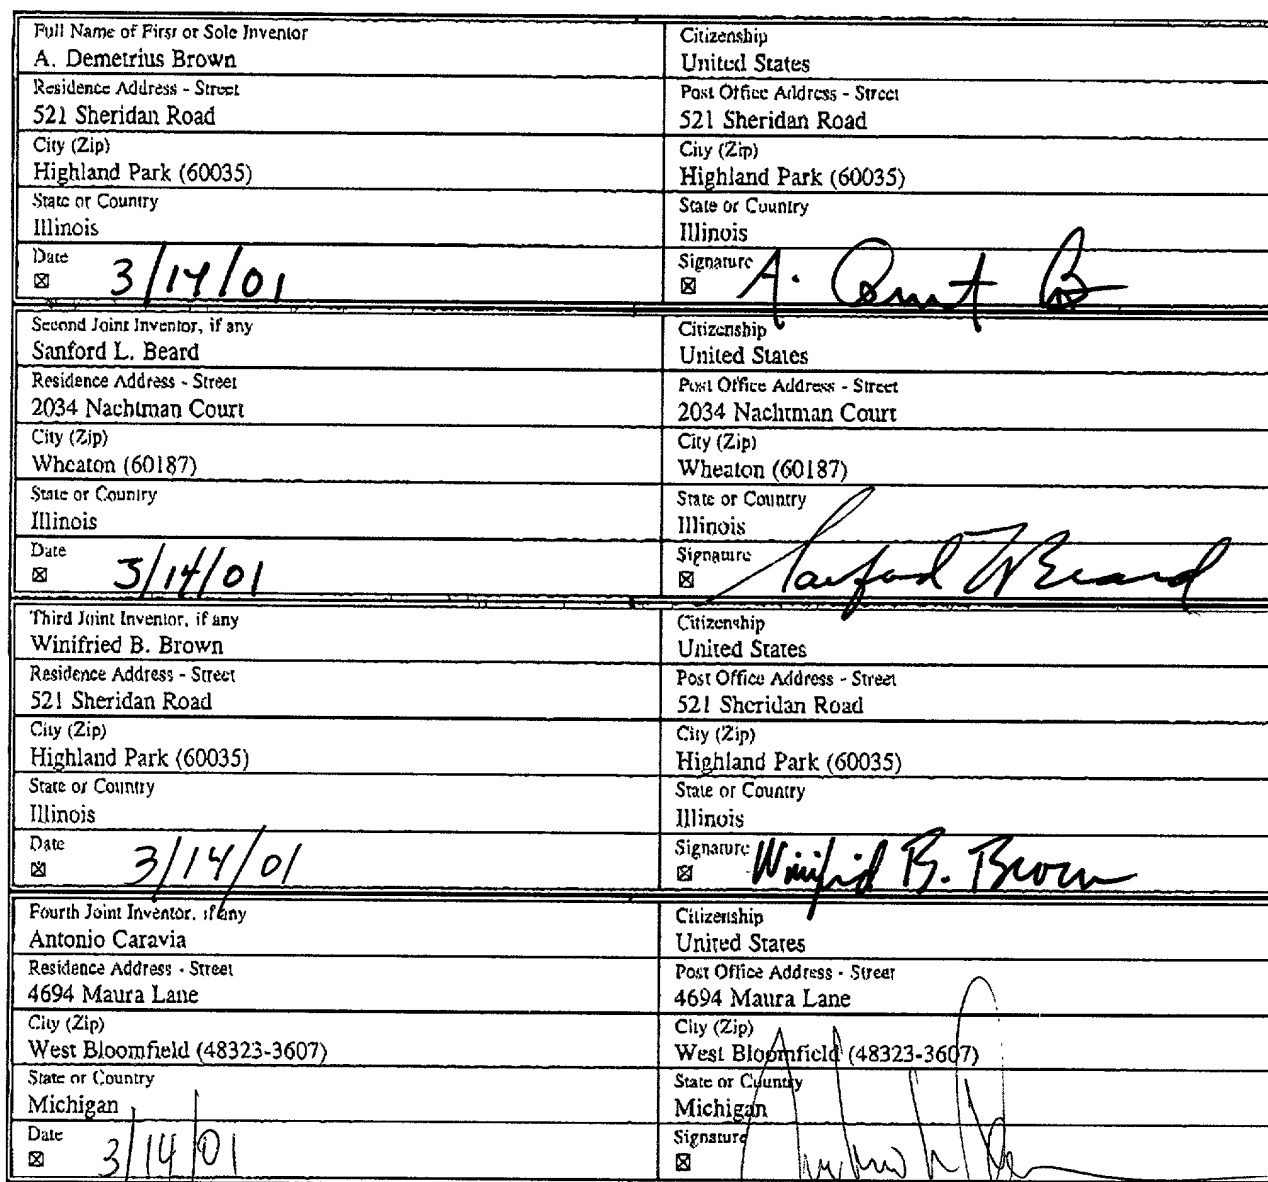 Full Name of First or Sole Inventor
A. Demetrius Brown
Citizenship
United States
Residence Address - Street
521 Sheridan Road
Post Office Address - Street
521 Sheridan Road
City (Zip)
Highland Park (60035)
City (Zip)
Highland Park (60035)
State or Country
Illinois
State or Country
Illinois
Date
☒ 3/14/01
Signature
☒ A.
Second Joint Inventor, if any
Sanford L. Beard
Citizenship
United States
Residence Address - Street
2034 Nachtman Court
Post Office Address - Street
2034 Nachtman Court
City (Zip)
Wheaton (60187)
City (Zip)
Wheaton (60187)
State or Country
Illinois
State or Country
Illinois
Date
☒ 3/14/01
Signature
☒ Sanford L Beard
Third Joint Inventor, if any
Winifried B. Brown
Citizenship
United States
Residence Address - Street
521 Sheridan Road
Post Office Address - Street
521 Sheridan Road
City (Zip)
Highland Park (60035)
City (Zip)
Highland Park (60035)
State or Country
Illinois
State or Country
Illinois
Date
☒ 3/14/01
Signature
☒ Winifrid B. Brown
Fourth Joint Inventor, if any
Antonio Caravia
Citizenship
United States
Residence Address - Street
4694 Maura Lane
Post Office Address - Street
4694 Maura Lane
City (Zip)
West Bloomfield (48323-3607)
City (Zip)
West Bloomfield (48323-3607)
State or Country
Michigan
State or Country
Michigan
Date
☒ 3/14/01
Signature
☒